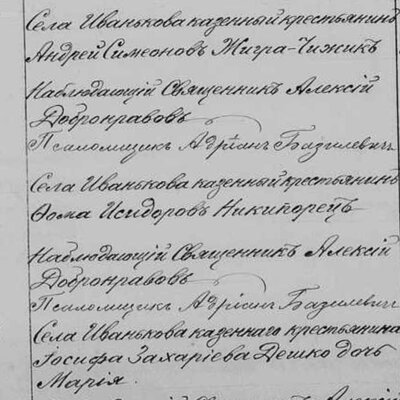 Села Иванькова казенный крестьянинъ
Андрей Симеоновъ Жигра-Чижикъ
Наблюдающій Священникъ Алексій
Добронравовъ
Псаломщикъ Адріанъ Базилевич
Села Иванькова казенный крестьянинъ
Ѳома Исидоровъ Никипорецъ
Наблюдающій Священникъ Алексій
Добронравовъ
Псаломщикъ Адріанъ Базилевич
Села Иванькова казеннаго крестьянина
Іосифа Захаріева Дешко дочь
Марія.